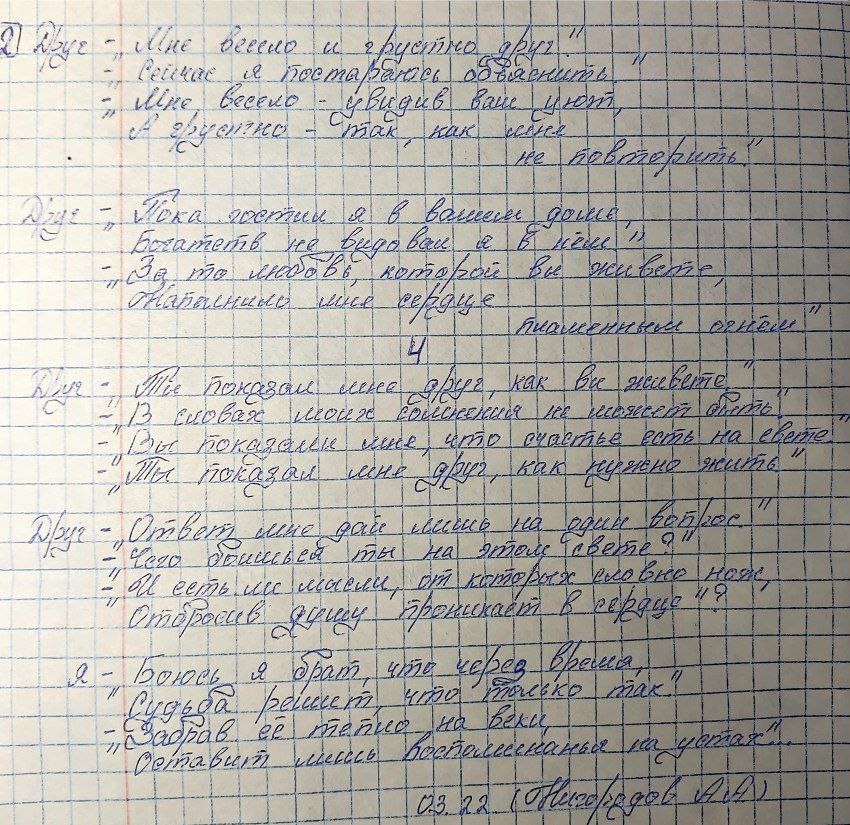 2) Друг – „Мне весело и грустно друг."
– „Сейчас я постараюсь объяснить."
– „Мне весело – увидив ваш уют,
А грустно – так, как мне
не повторить."
Друг – „Пока гостил я в вашем доме,
Богатств не видовал я в нём."
– „За то любовь, которой вы живете,
Наполнило мне сердце
пламенным огнём"
4
Друг – „Ты показал мне друг, как вы живете."
– „В словах моих сомнения не может быть."
– „Вы показали мне, что счастье есть на свете"
– „Ты показал мне друг, как нужно жить"
Друг – „Ответ мне дай лишь на один вопрос."
– „Чего боишься ты на этом свете?"
– „И есть ли мысли, от которых словно нож,
Отбросив душу проникает в сердце"?
Я – „Боюсь я брат, что через время,
Судьба решит, что только так."
– „Забрав её тепло на веки,
Оставит лишь воспоминанья на устах"...
03.22 (Жигородов А.А)